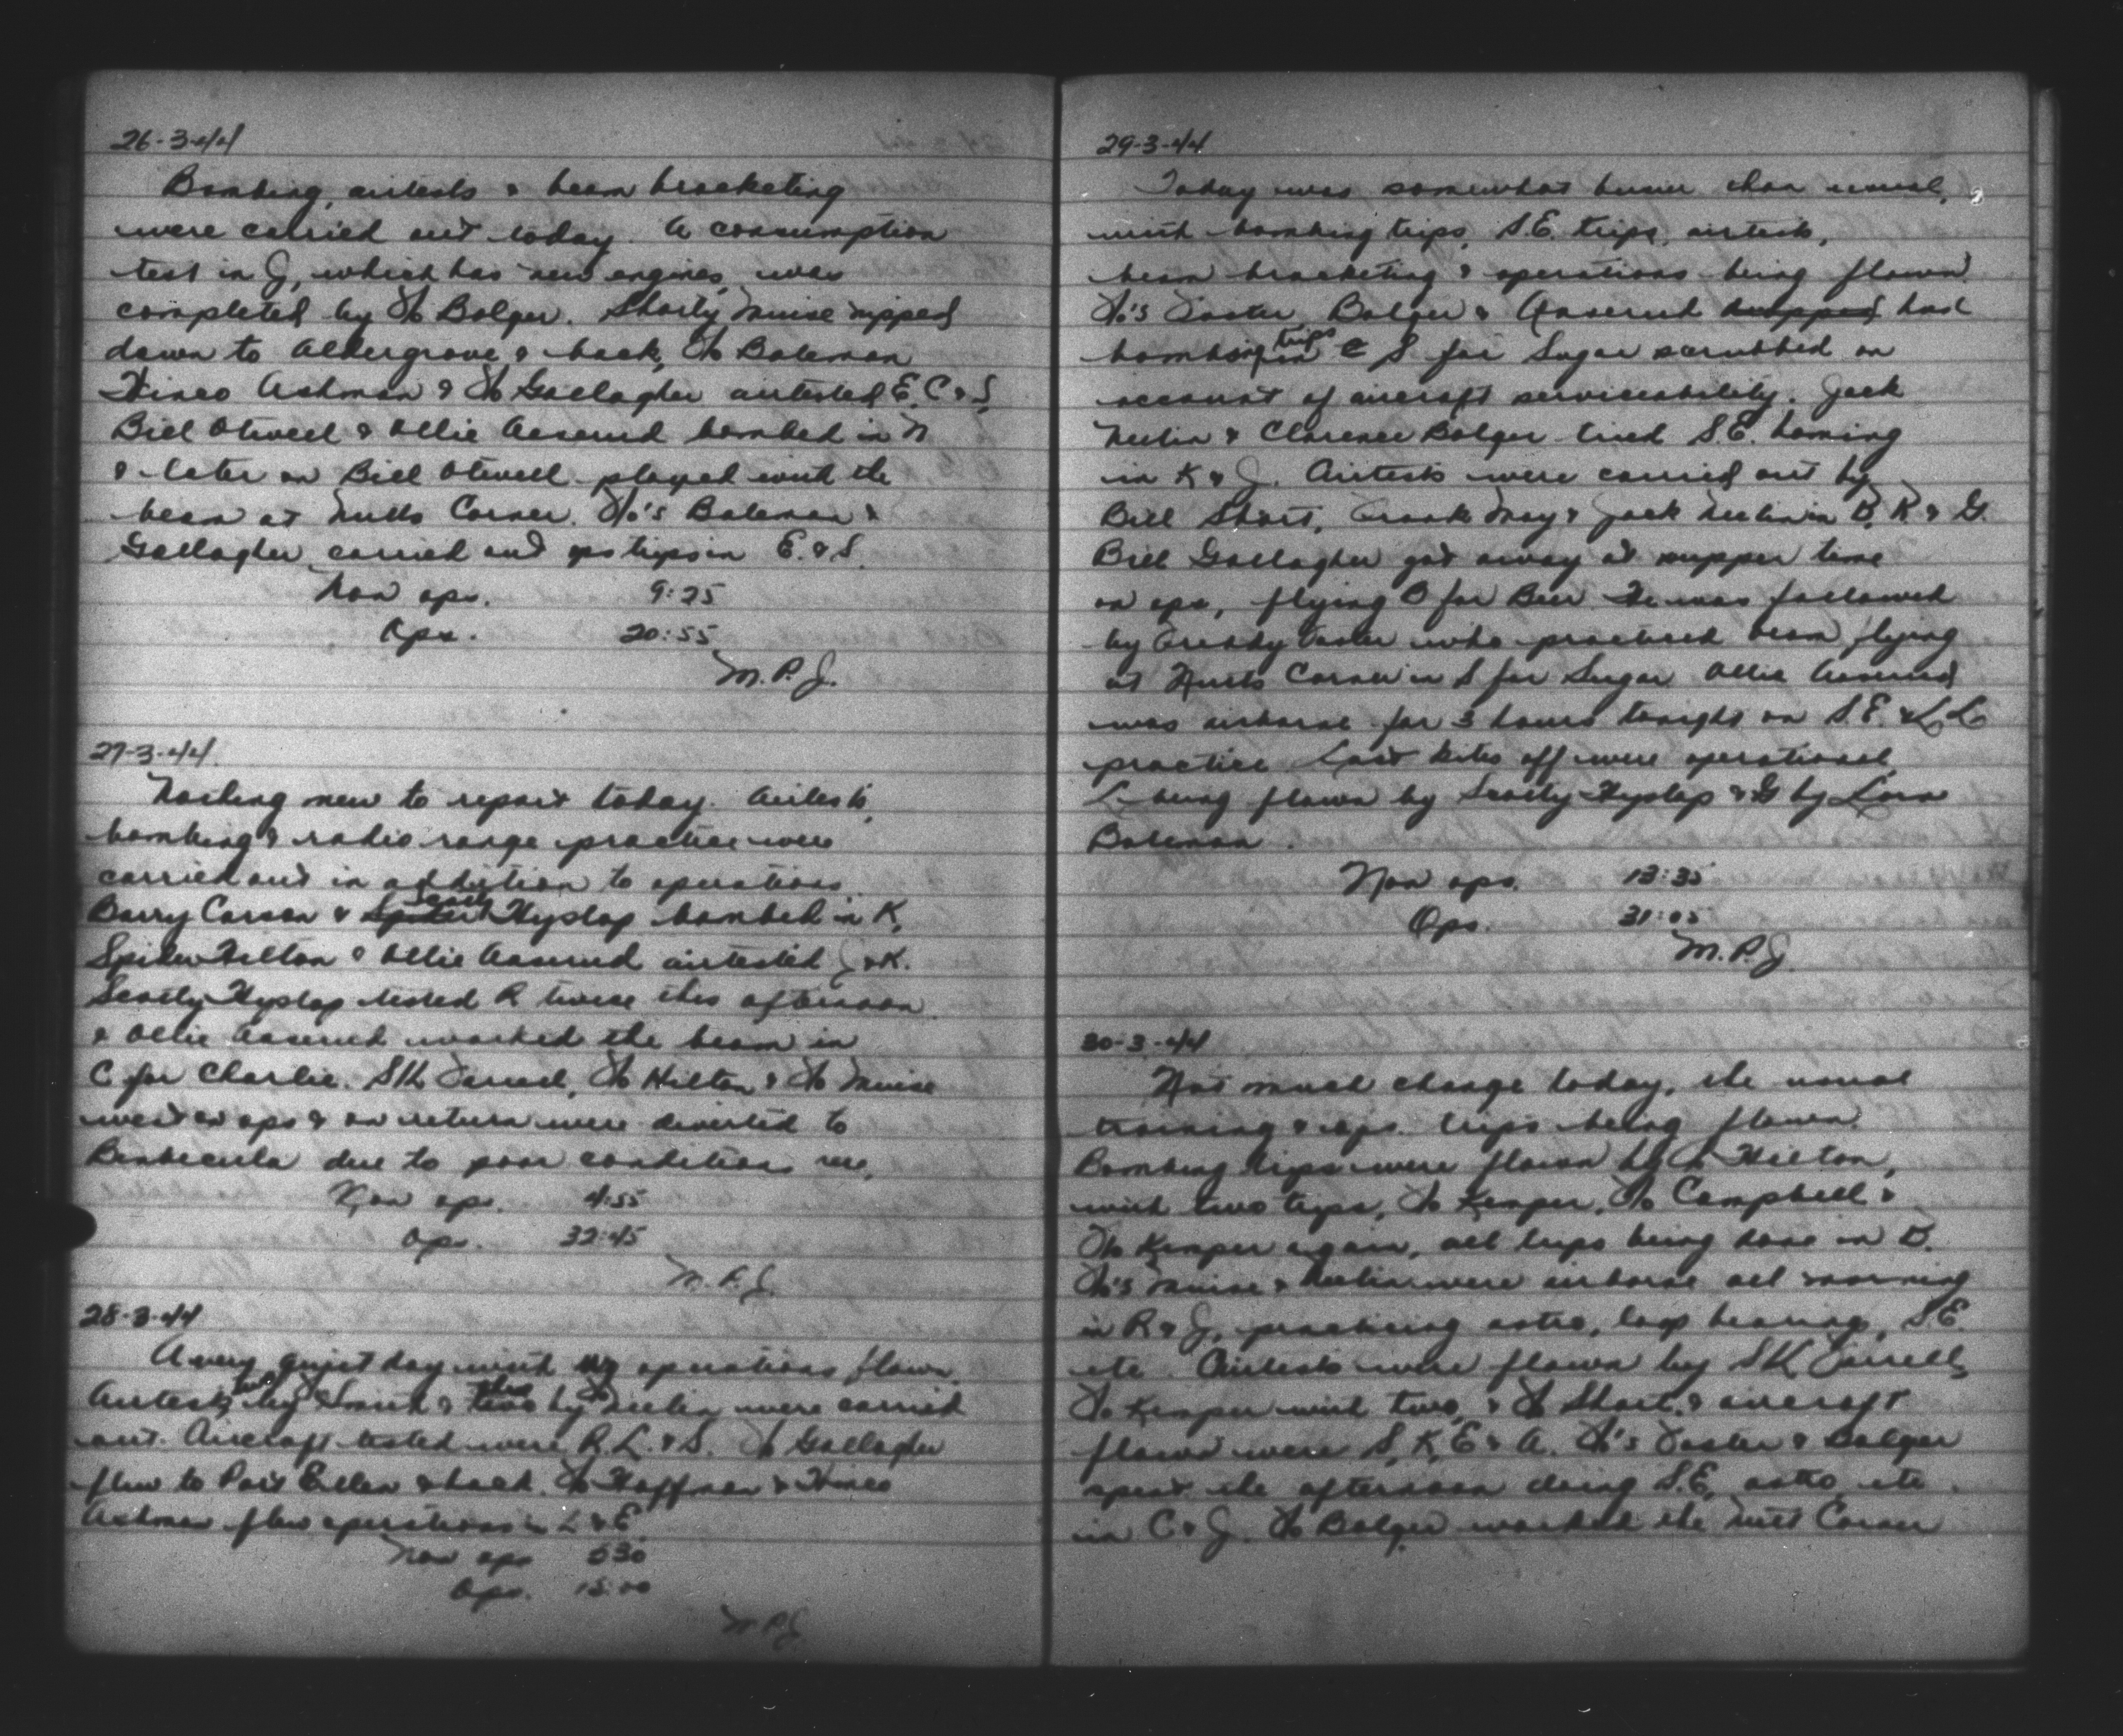 26-3-44
Bombing, airtests & beam bracketing
were carried out today. A consumption
test in J, which has new engines, was
completed by F/O Bolger. Shorty Muise nipped
down to Aldergrove & back, F/O Bateman
Hineo Ashman & F/O Gallagher airtested E, C & S.
Bill Otwell & Ollie Aaserud bombed in N
& later on Bill Otwell played with the
beam at Nutts Corner. F/O's Bateman &
Gallagher carried out ops trips in E. & S.
Non ops. 9:25
Ops. 20:55
M.P.J.
27-3-44.
Nothing new to report today. Airtests,
bombing & radio range practice were
carried out in addition to operations.
Barry Carson & Scotty Hyslop bombed in K,
Spider Hilton & Ollie Aaserud airtested J & K.
Scotty Hyslop tested R twice this afternoon
& Ollie Aaserud worked the beam in
C for Charlie. S/L Farrell, F/O Hilton & F/O Muise
went on ops & on return were diverted to
Benbecula due to poor conditions here.
Non ops. 4:55
Ops. 32:45
M.P.J.
28-3-44
A very quiet day with operations flown.
Airtests, by Smith & by Neelin were carried
out. Aircraft tested were R, L. & S. F/O Gallagher
flew to Port Ellen & back. F/O Hoffman & Hineo
Ashman flew operations in L & E.
Non ops 530
Ops. 15:00
M.P.J.
29-3-44
Today was somewhat busier than usual,
with bombing trips, S.E. trips, airtests,
beam bracketing & operations being flown.
F/O's Foster, Bolger & Aaserud had
bombing trips in S for Sugar scrubbed on
account of aircraft serviceability. Jack
Neelin & Clarence Bolger tried S.E. homing
in K & J. Airtests were carried out by
Bill Short, Frank May & Jack Neelin in B, K & G.
Bill Gallagher got away at supper time
on ops, flying B for Beer. He was followed
by Freddy Foster who practised beam flying
at Nutts Corner in S for Sugar. Ollie Aaserud
was airborne for 3 hours tonight on S.E. & L.L.
practice. Last kites off were operational
L being flown by Scotty Hyslop & G by Lorn
Bateman.
Non ops. 13:35
Ops. 31:05
M.P.J.
30-3-44
Not much change today, the usual
training & ops. trips being flown.
Bombing trips were flown by F/O Hilton,
with two trips, F/O Kemper, F/O Campbell &
F/O Kemper again, all trips being done in D.
F/O's Muise & Neelin were airborne all morning
in R & J, practicing astro, loop bearings, S.E.
etc. Airtests were flown by S/L Farrell,
F/O Kemper with two, & F/O Short & aircraft
flown were S, K, E & A. F/O's Foster & Bolger
spent the afternoon doing S.E, astro, etc.
in C & J. F/O Bolger worked the Nutts Corner